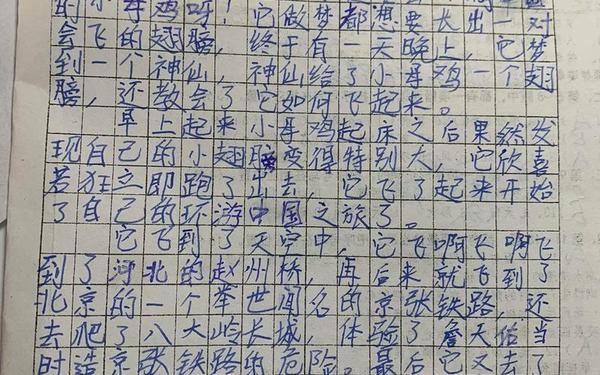 的小母鸡呀！它做梦都想要长出一对
会飞的翅膀，终于有一天晚上，它梦
到一个神仙，神仙给了小母鸡一个翅
膀，还教会了它如何飞起来。
早上起来小母鸡起床之后果然发
现自己的小翅膀变得特别大，它欣喜
若狂立即跑了出去，它飞了起来开始
了自己的环游中国之旅了。
它飞到了天空中，它飞啊飞啊飞
到了河北的赵州桥，再后来就飞到了
北京的一个举世闻名的京张铁路，还
去爬了八大岭长城，体验了詹天佑当
时造京张铁路的危险。最后它又去了